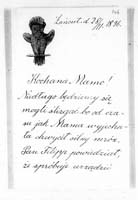 Łańcut d. 28/XI 1896.
Kochana Mamo!
Niedługo będziemy się
mogli ślizgać bo od cza-
su jak Mama wyjecha-
ła chwycił silny mróz.
Pan Filipp powiedział,
że spróbuje urządzić